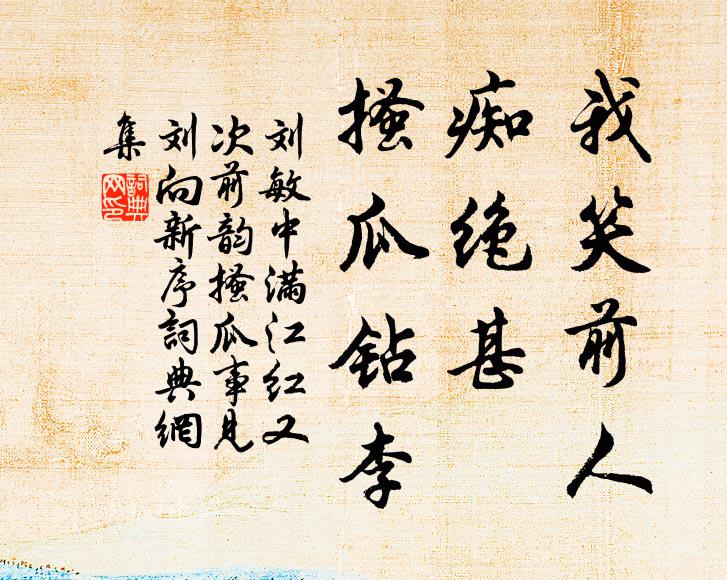 我笑前人
痴绝甚
搔瓜钻李
刘敏中满江红又
次前韵搔瓜事见
刘向新序詞典網
集
詞典
网印